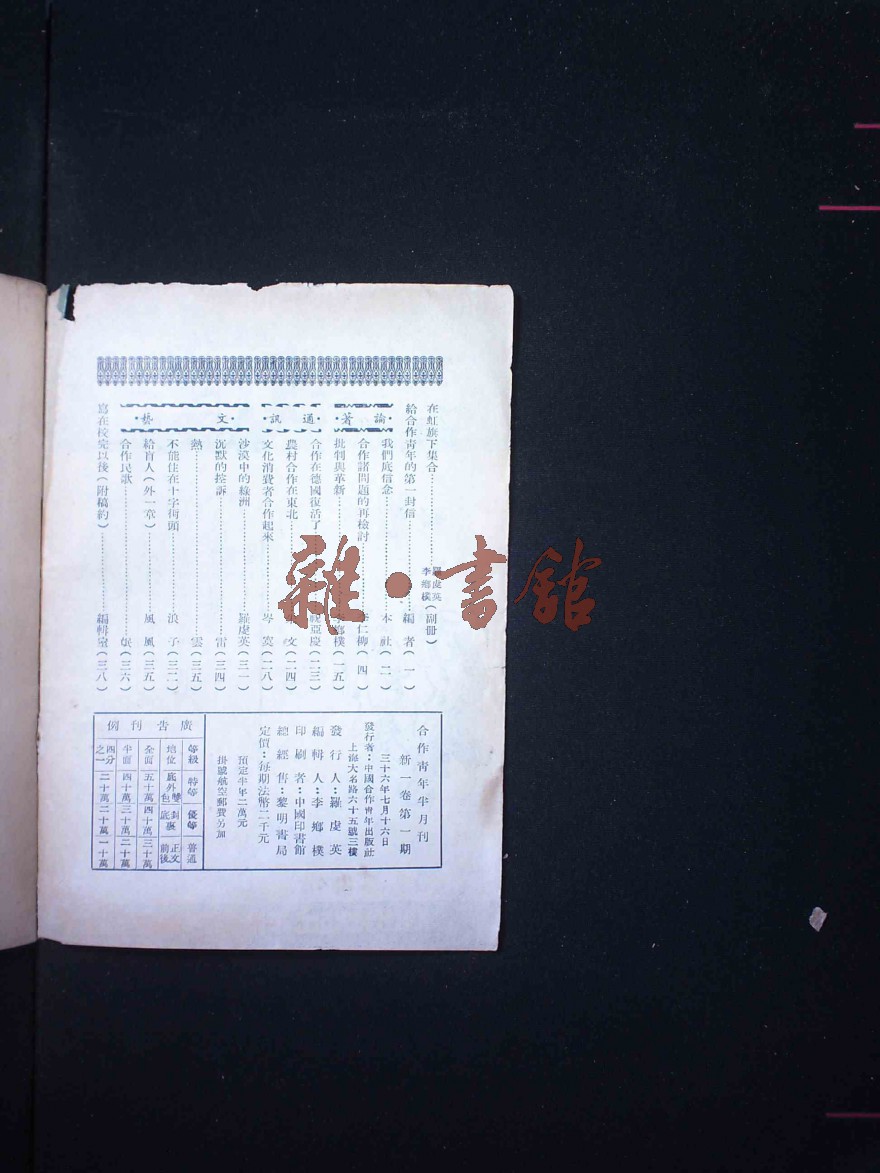 在虹旗下集合 羅虔英 李鄉樸（副冊）
給合作青年的第一封信 編者（一）
·論著·
我們底信念 本社（二）
合作諸問題的再檢討 仁柳（四）
批判與革新 李鄉樸（一五）
·通訊·
合作在德國復活了 祝亞慶（二三）
農村合作在東北 文（二四）
文化消費者合作起來 岑（二八）
·文藝·
沙漠中的綠洲 羅虔英（三一）
沉默的控訴 雷（三四）
熱 雲（三五）
不能住在十字街頭 浪子（三二）
給盲人（外一章） 風風（三五）
合作民歌 （三六）
寫在校完以後（附稿約） 編輯室（三八）
合作青年半月刊
新一卷第一期
三十六年七月十六日
發行者：中國合作青年出版社
上海大名路六十五號三樓
發行人：羅虔英
編輯人：李鄉樸
印刷者：中國印書館
總經售：黎明書局
定價：每期法幣二千元
預定半年二萬元
掛號航空郵費另加
廣告刊例
等級 特等 優等 普通
地位 底外雙包 封裏底 正文前後
全面 五十萬 四十萬 三十萬
半面 四十萬 三十萬 二十萬
四分之一 二十萬 二十萬 一十萬
雜·書館